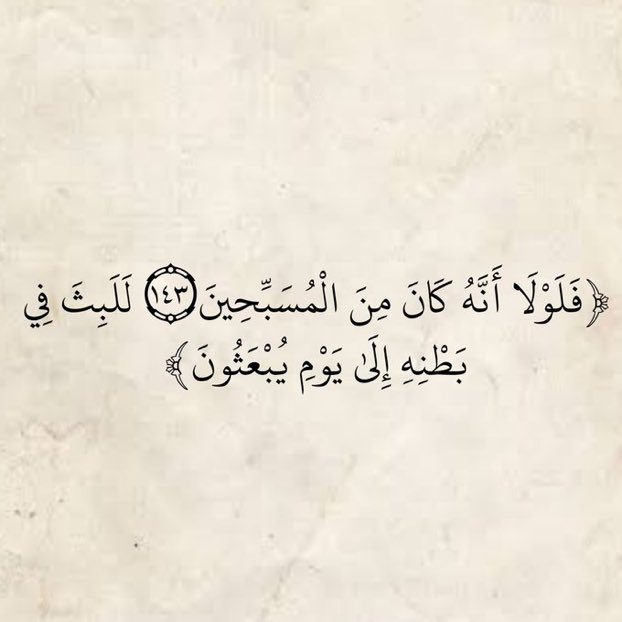 ﴿فَلَوْلَا أَنَّهُ كَانَ مِنَ الْمُسَبِّحِينَ ١٤٣ لَلَبِثَ فِي
بَطْنِهِ إِلَىٰ يَوْمِ يُبْعَثُونَ﴾